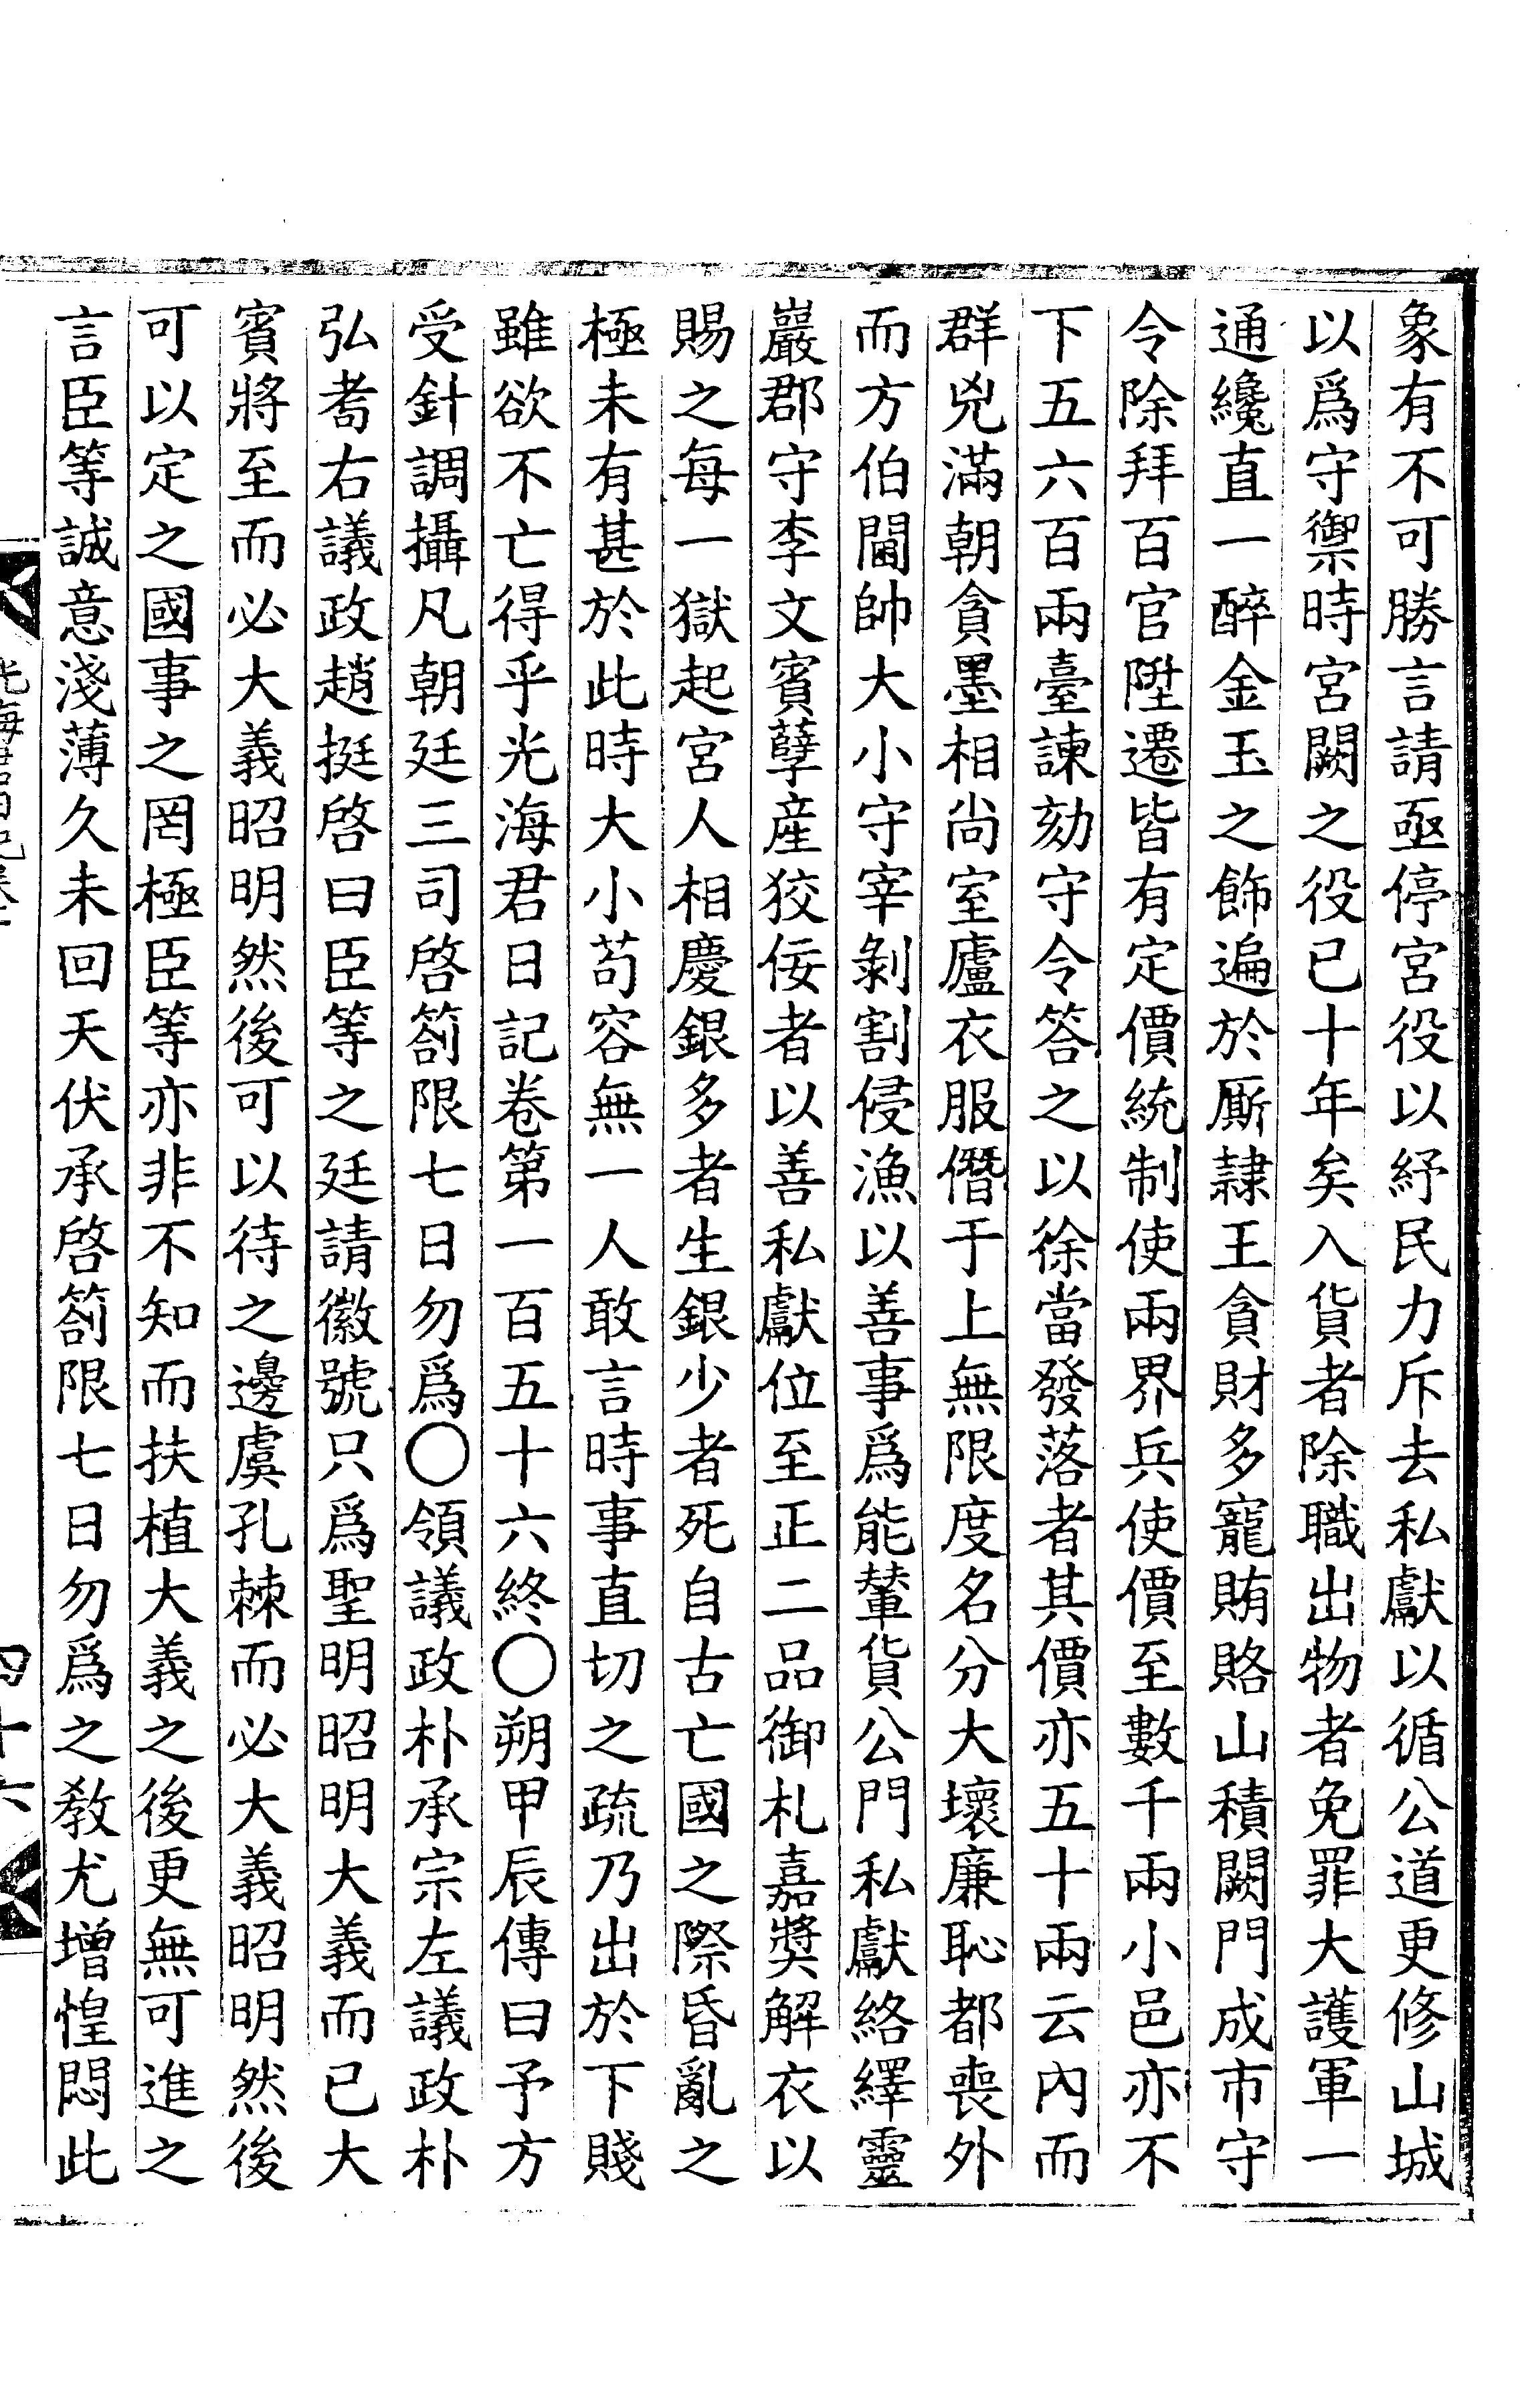 象有不可勝言請亟停宮役以紓民力斥去私獻以循公道更修山城
以爲守禦時宮闕之役已十年矣入貨者除職出物者免罪大護軍一
通纔直一醉金玉之飾遍於厮隷王貪財多寵賄賂山積闕門成市守
令除拜百官陞遷皆有定價統制使兩界兵使價至數千兩小邑亦不
下五六百兩臺諫劾守令答之以徐當發落者其價亦五十兩云內而
群兇滿朝貪墨相尙室廬衣服僭于上無限度名分大壞廉恥都喪外
而方伯閫帥大小守宰剝割侵漁以善事爲能輦貨公門私獻絡繹靈
巖郡守李文賓孽産狡佞者以善私獻位至正二品御札嘉奬解衣以
賜之每一獄起宮人相慶銀多者生銀少者死自古亡國之際昏亂之
極未有甚於此時大小苟容無一人敢言時事直切之疏乃出於下賤
雖欲不亡得乎光海君日記卷第一百五十六終○朔甲辰傳曰予方
受針調攝凡朝廷三司啓箚限七日勿爲○領議政朴承宗左議政朴
弘耈右議政趙挺啓曰臣等之廷請徽號只爲聖明昭明大義而已大
賓將至而必大義昭明然後可以待之邊虞孔棘而必大義昭明然後
可以定之國事之罔極臣等亦非不知而扶植大義之後更無可進之
言臣等誠意淺薄久未回天伏承啓箚限七日勿爲之敎尤增惶悶此
四十六